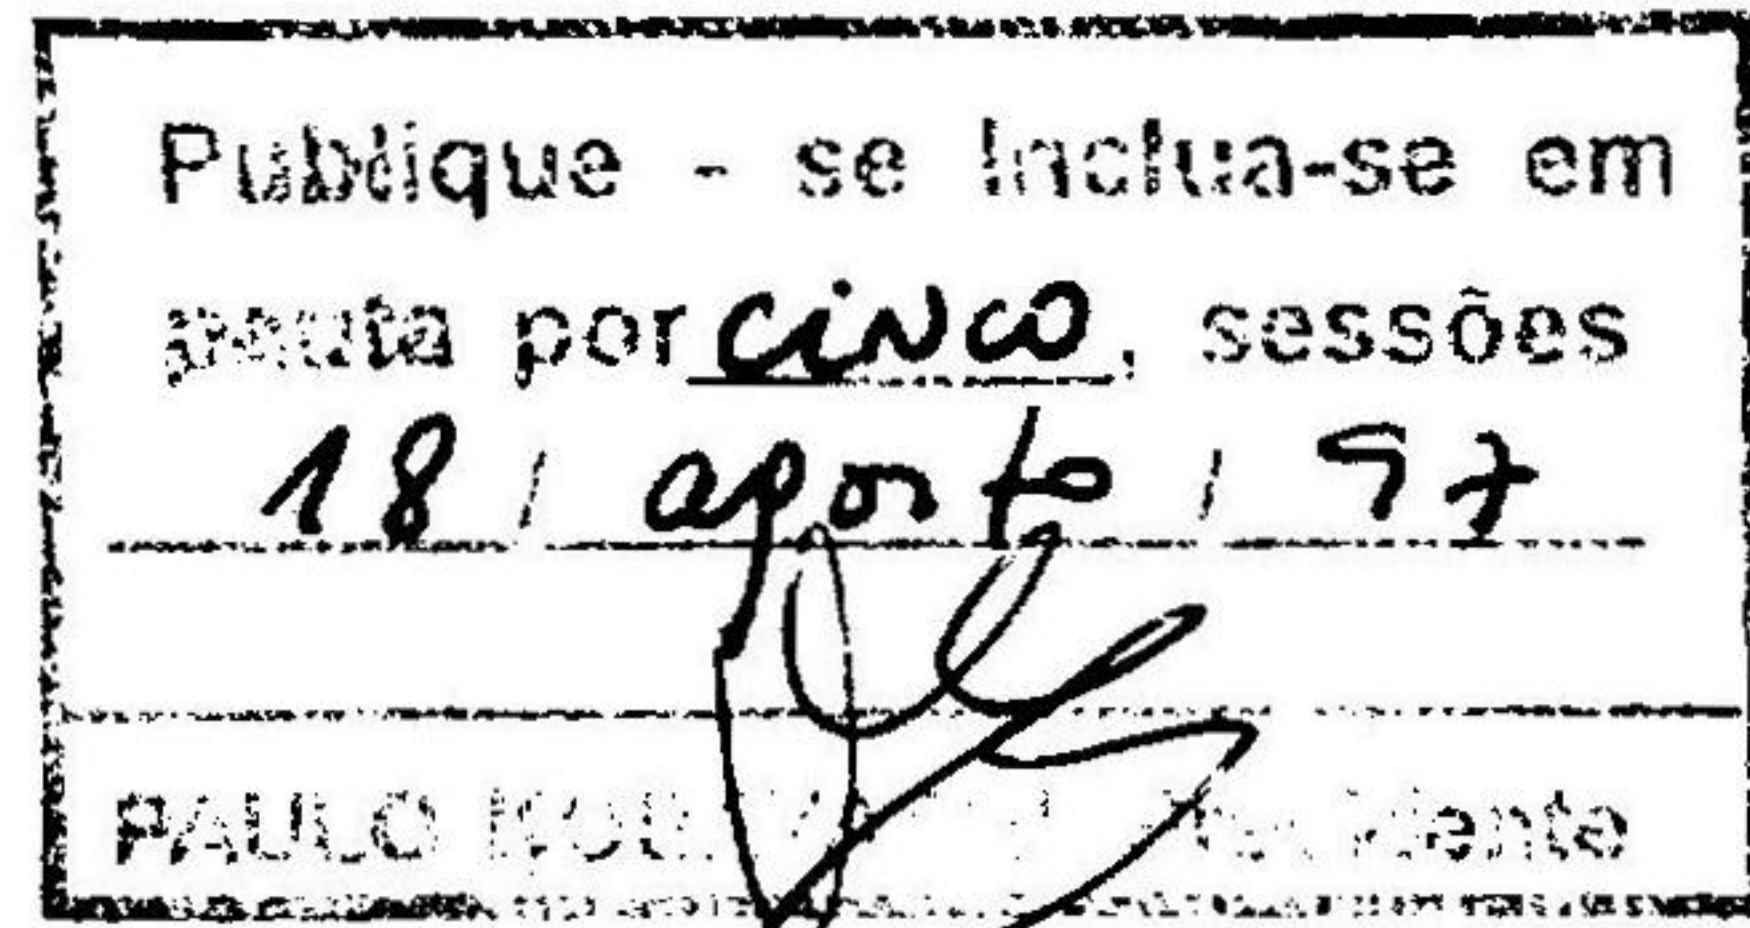 Publique - se Inclua-se em
pauta por cinco, sessões
18 / agosto / 97
PAULO Presidente